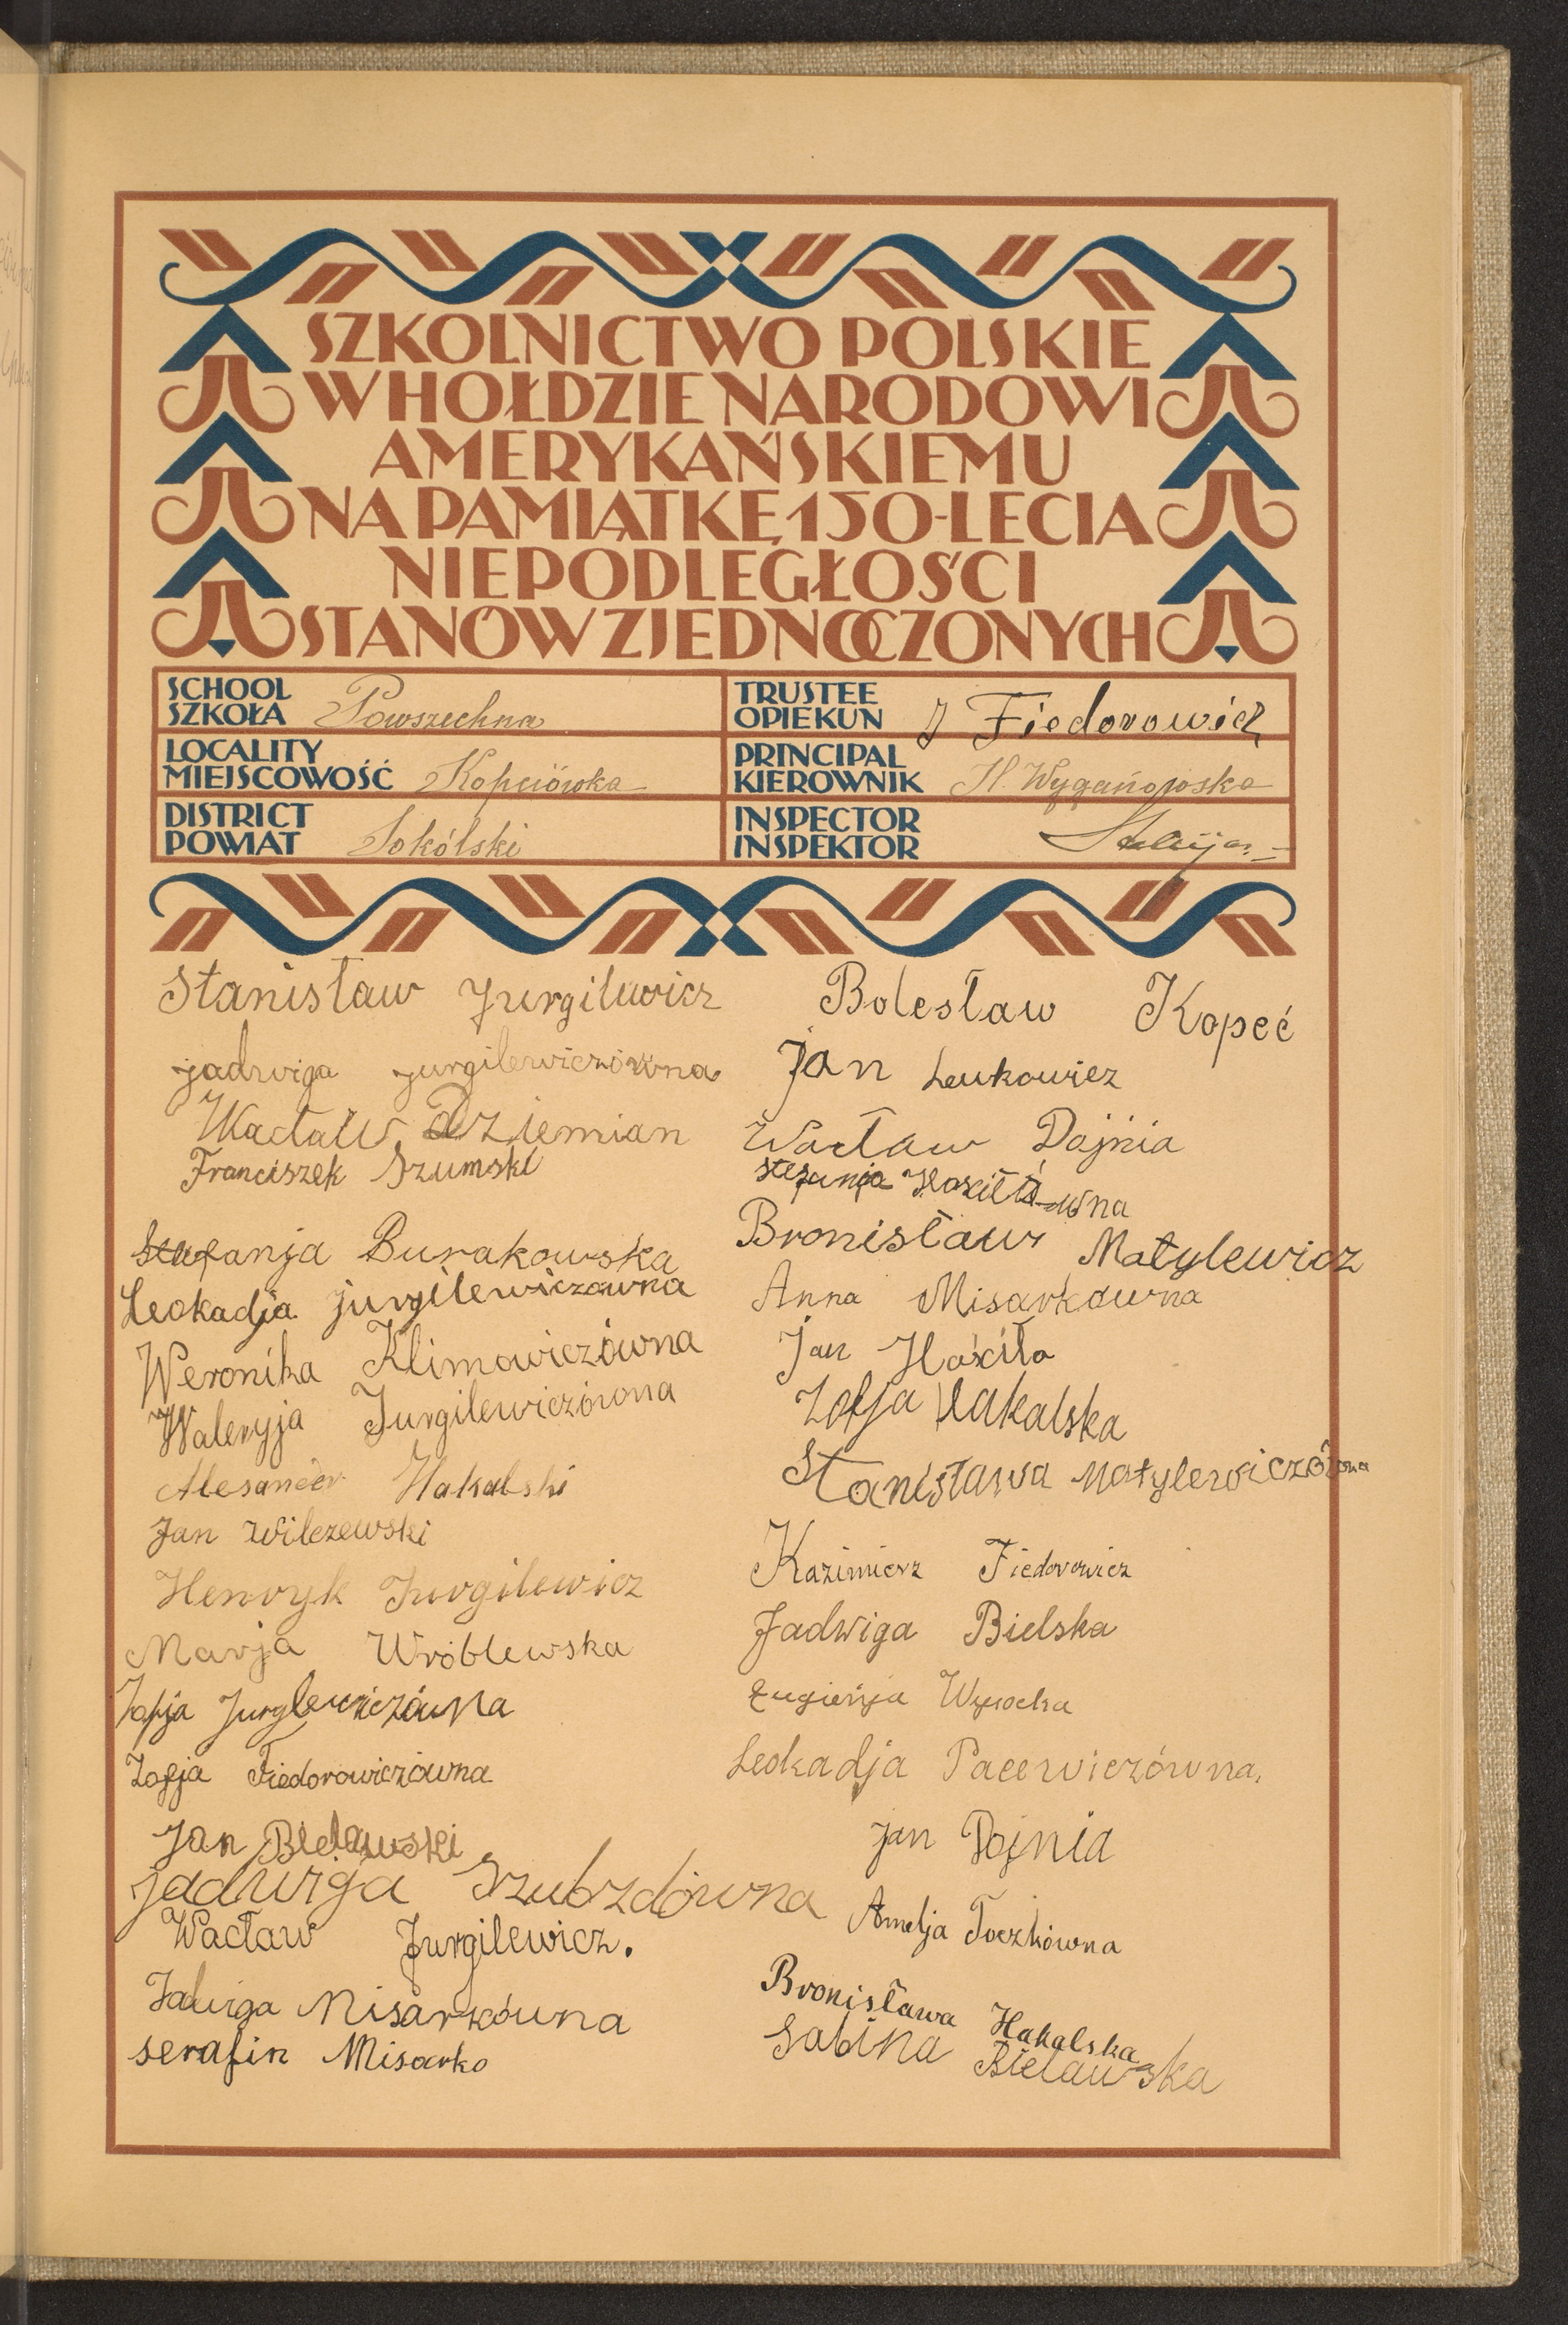 SZKOLNICTWO POLSKIE
W HOŁDZIE NARODOWI
AMERYKAŃSKIEMU
NA PAMIĄTKĘ 150-LECIA
NIEPODLEGŁOŚCI
STANÓW ZJEDNOCZONYCH
SCHOOL
SZKOŁA Powszechna
LOCALITY
MIEJSCOWOŚĆ Kopciówka
DISTRICT
POWIAT Sokólski
TRUSTEE
OPIEKUN J Fiedorowicz
PRINCIPAL
KIEROWNIK H. Wygańowska
INSPECTOR
INSPEKTOR
Stanisław Jurgilewicz
jadwiga jurgilewiczówna
Wacław Dziemian
Franciszek Szumski
Stefanja Burakowska
Leokadja jurgilewiczówna
Weronika Klimowiczówna
Waleryja Jurgilewiczówna
Alesander Hakalski
Jan Wilczewski
Henryk Jurgilewicz
Marja Wróblewska
Zofja Jurglewiczówna
Zofja Fiedorowiczówna
Jan Bielawski
jadwiga Szubzdówna
Wacław Jurgilewicz.
Jadwiga Misarkówna
serafin Misarko
Bolesław Kopeć
jan Leukowicz
Wacław Dojnia
Stefanja Hoxiłówna
Bronisław Matylewicz
Anna Misarkówna
Jan Hoxiło
Zofja Hakalska
Stanisława Matylewiczówna
Kazimierz Fiedorowicz
Jadwiga Bielska
Eugienja Wysocka
Leokadja Pacewiczówna,
jan Dojnia
Amelja Toczkówna
Bronisława Hakalska
Sabina Bielawska